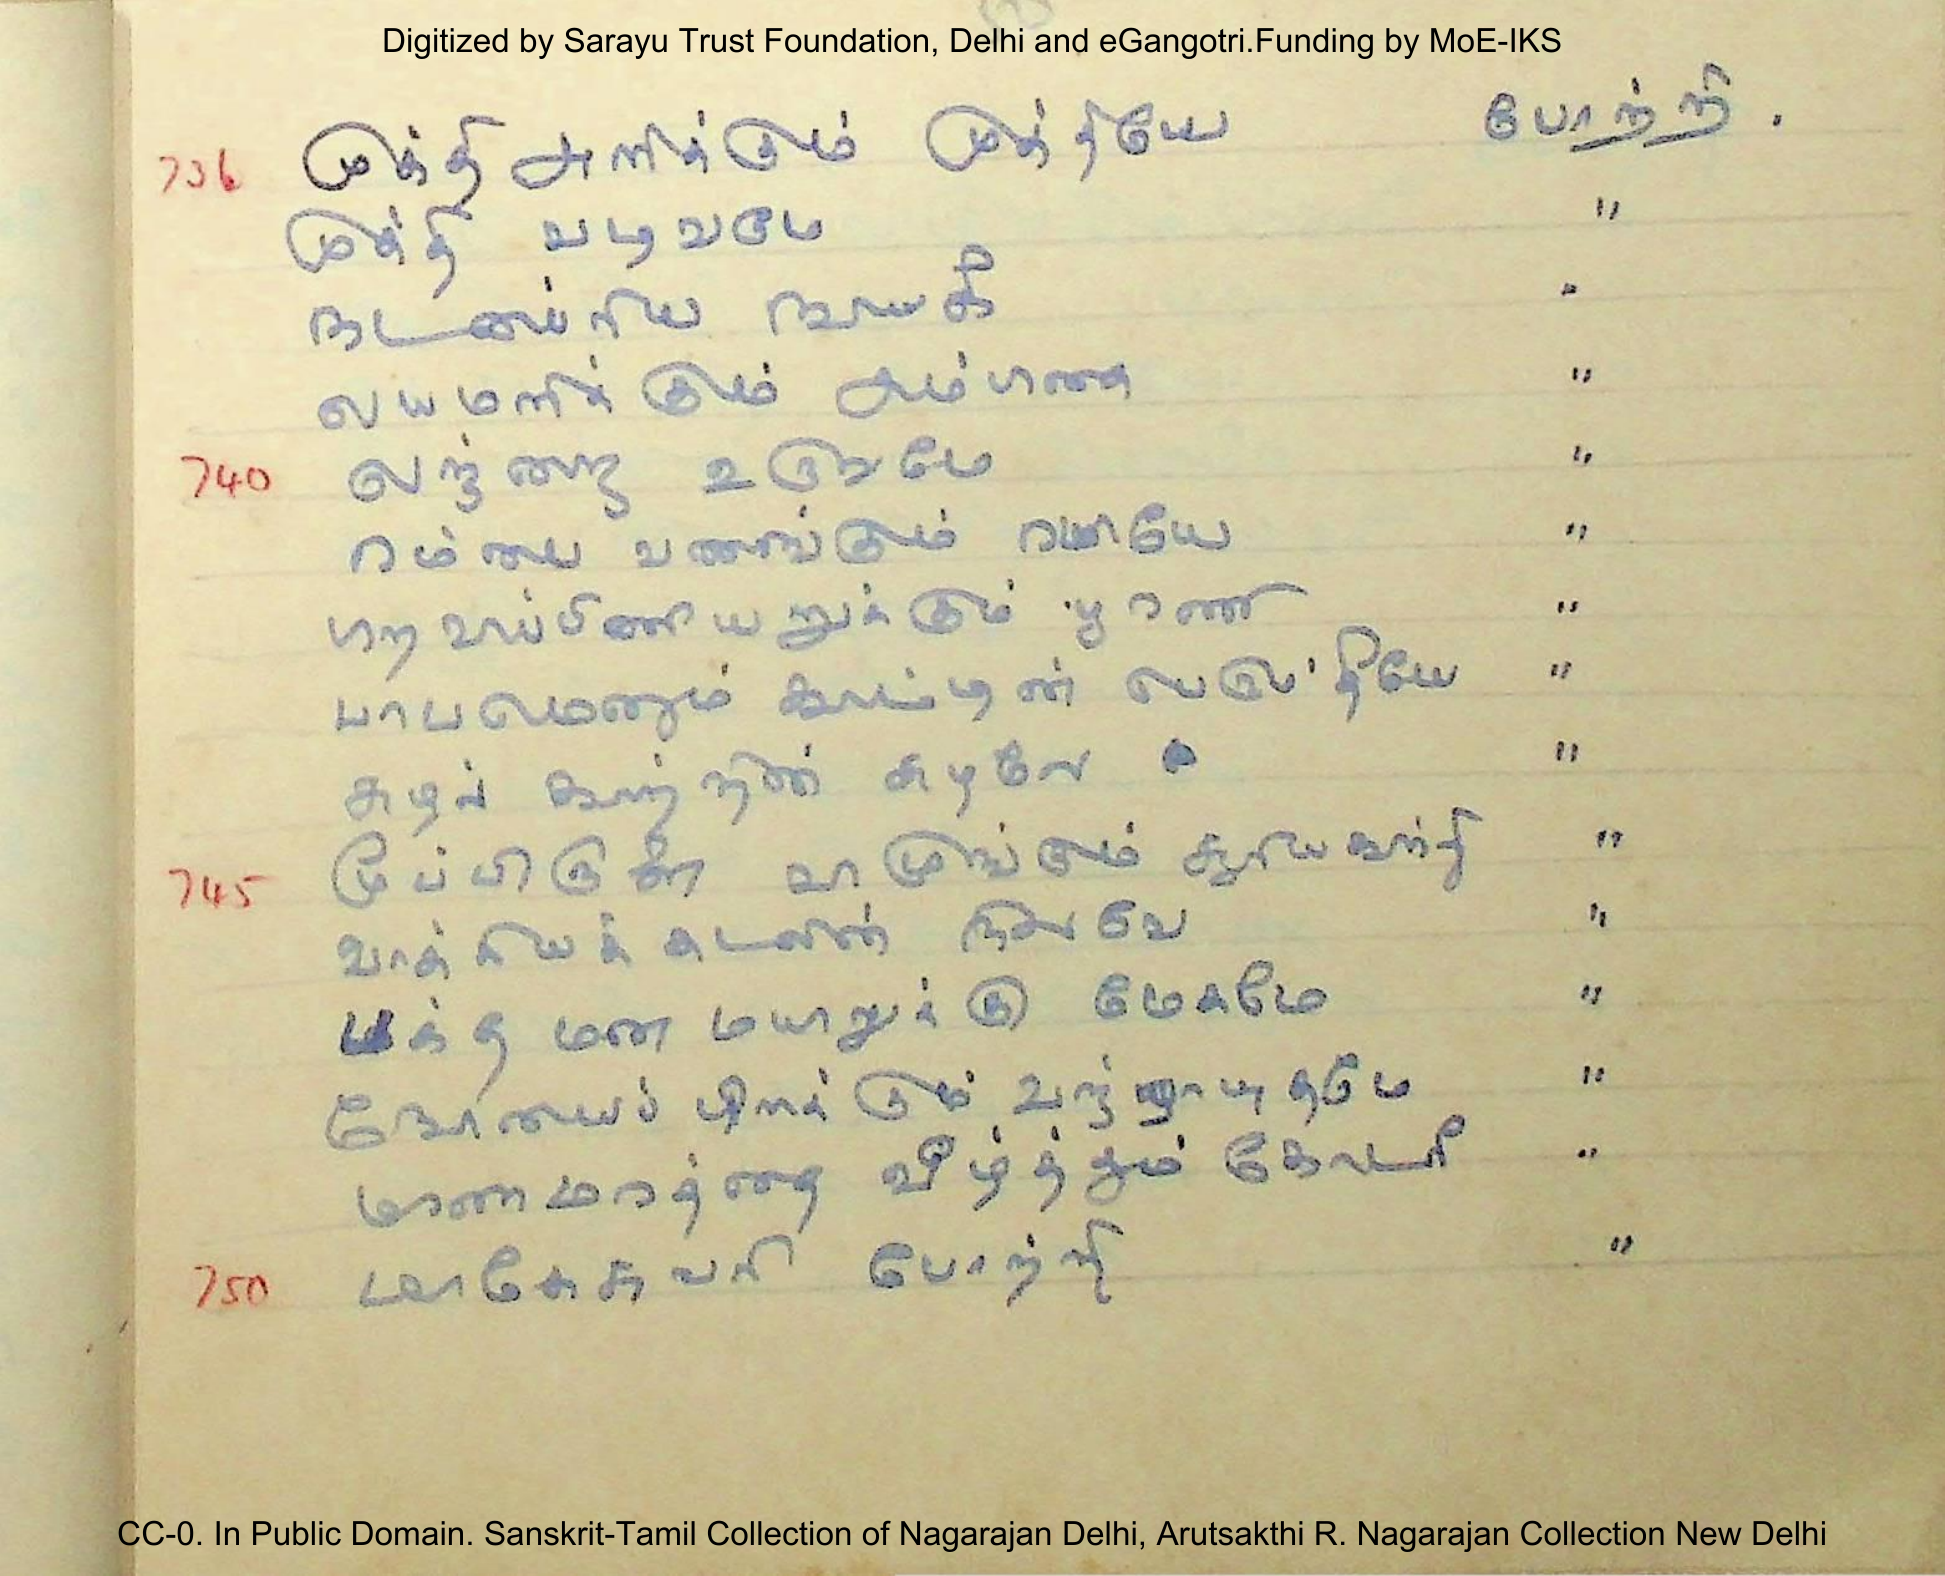 Digitized by Sarayu Trust Foundation, Delhi and eGangotri.Funding by MoE-IKS
736 முக்தி அளிக்கும் முக்தியே போற்றி.
முக்தி வடிவமே "
நடனப்ரிய நாயகீ "
லயமளிக்கும் அம்பிகை "
740 லஜ்ஜை உருவமே "
ரம்பை வணங்கும் ரமையே "
பிறவிப்பிணியறுக்கும் பூரணி "
பாபமெனும் காட்டின் "
சுழல் காற்றின் சுழலே "
745 மூப்பிருள் சூரியகாந்தி "
பாக்கியக் கடலின் நிலவே "
பக்த மன மயிலுக்கு மேகமே "
நோயைப் பிளக்கும் வஜ்ராயுதமே "
மரண மரத்தை வீழ்த்தும் கோடரி "
750 மாகேசுவரி போற்றி "
CC-0. In Public Domain. Sanskrit-Tamil Collection of Nagarajan Delhi, Arutsakthi R. Nagarajan Collection New Delhi